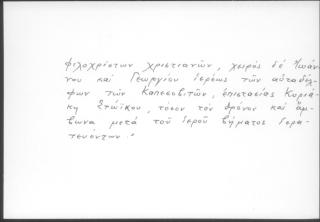 φιλοχρίστων χριστιανῶν, χωρὶς δὲ Ἰωάν
νου καὶ Γεωργίου ἱερέως τῶν αὐταδέλ
φων τῶν Καπεσοβιτῶν, ἐπιστασίας Κυριά
κη Στώϊκου, τόσον τὸν θρόνον καὶ ἄμ
βωνα μετὰ τοῦ ἱεροῦ βήματος ἱερα
τευόντων."